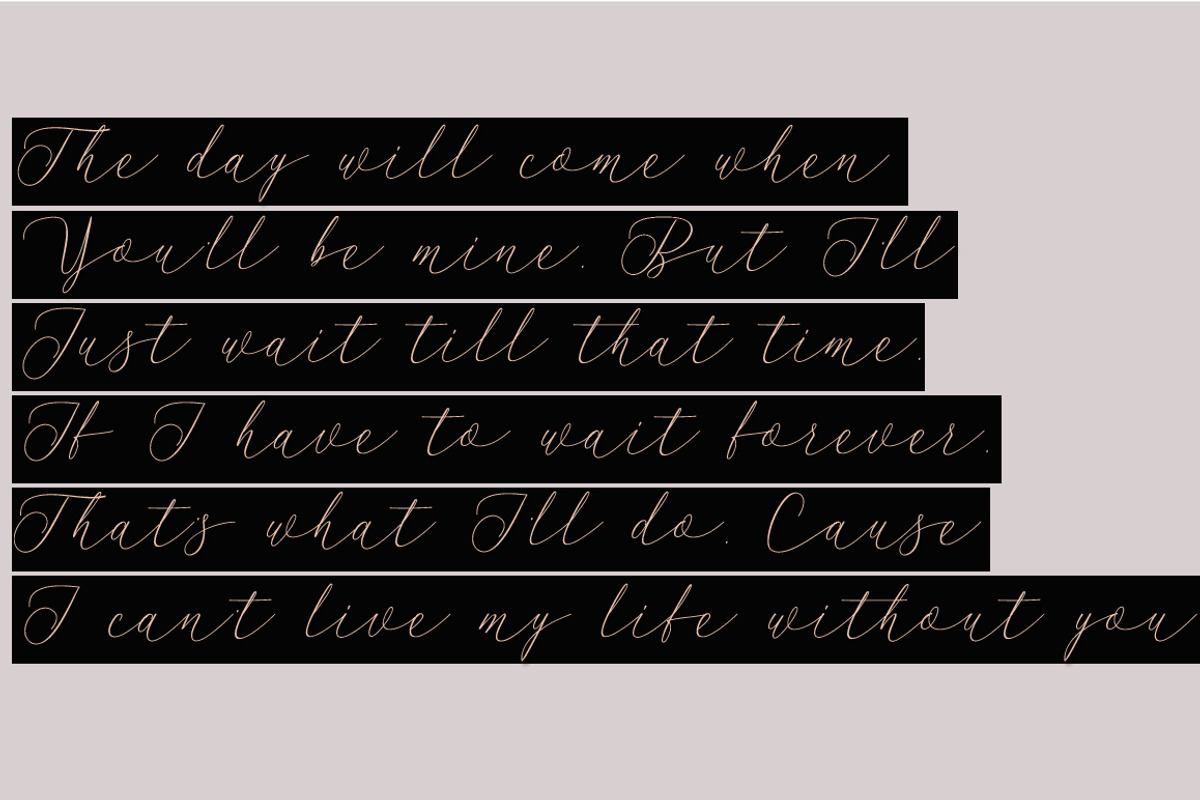 The day will come when
You'll be mine. But I'll
Just wait till that time.
If I have to wait forever.
That's what I'll do. Cause
I can't live my life without you